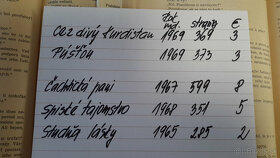 Rok
vyd. strany €
Cez divý Kurdistan 1969 369 3
Púšťou 1969 373 3
Čachtická pani 1967 599 8
Spišské tajomstvo 1968 351 5
Studňa lásky 1965 285 2